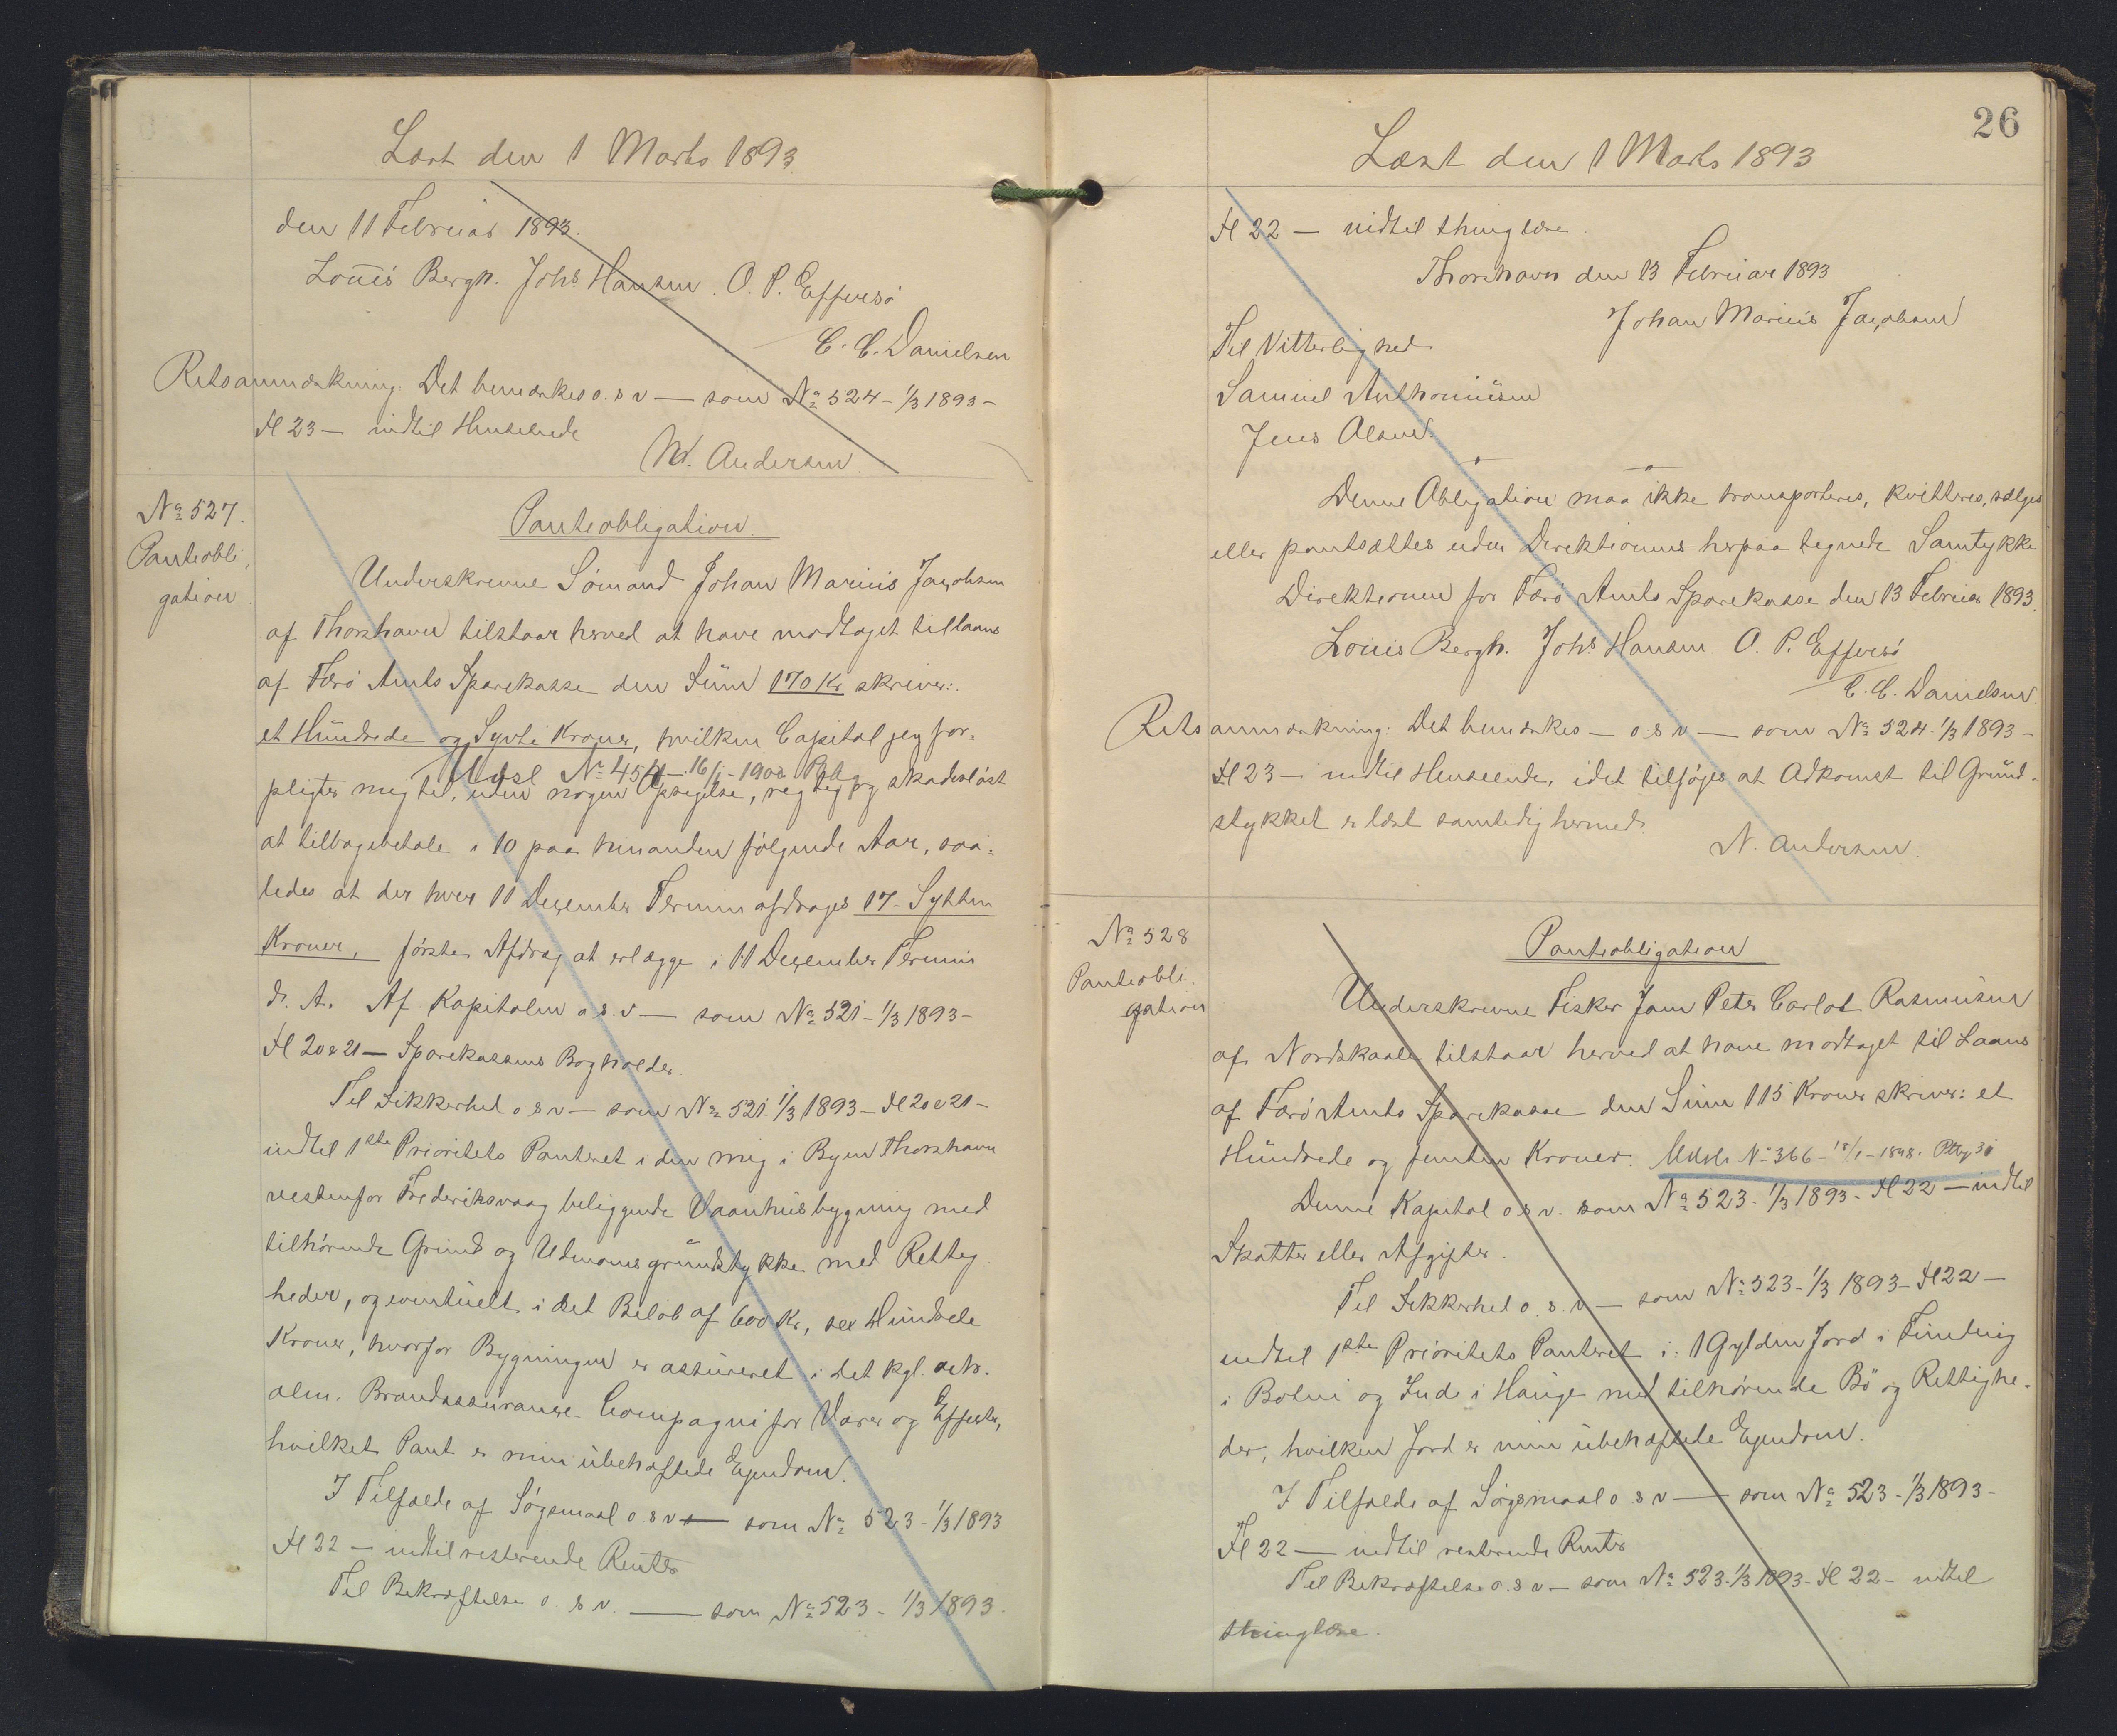 Læst den 1 Marts 1893
den 11 Februar 1893.
Louis Bergh. Johs Hansen. O. P. Effersö
C. C. Danielsen
Retsanmærkning: Det bemærkes o. s v — som No 524 - 1/3 1893 -
Fl 23 — indtil Henseende
N. Andersen
No 527.
Panteobli,
gation.
Panteobligation.
Underskrevne Sömand Johan Marius Jacobsen
af Thorshavn tilstaar herved at have modtaget tillaans
af Færö Amts Sparekasse den Sum 170 Kr skriver:
et Hundrede og Syvti Kroner, hvilken Capital jeg for-
Udsl No 45 16/1 - 1900
pligter mig til, uden nogen Opsigelse, regtig og skadeslöst
at tilbagebetale i 10 paa hinanden fölgende Aar, saa-
ledes at der hver 11 December Termin afdrages 17 - Sytten
Kroner, förste Afdrag at erlægge i 11 December Termin
d. A. Af Kapitalen o. s. v — som No 521 - 1/3 1893 -
Fl 20 & 21 — Sparekassens Bogholder.
Til Sikkerhed o s v — som No 521. 1/3 1893 - Fl 20 & 21 -
indtil 1ste Prioritets Panteret i den mig i Byen Thorshavn
vestenfor Frederiksvaag beliggende Vaanhusbygning med
tilhörende Grund og Udmarksgrundstykke med Rettig
heder, og eventuelt i det Belöb af 600 Kr, sex Hundrede
Kroner, hvorfor Bygningen er assureret i det kgl. octr.
alm. Brandassurance-Compagni for Varer og Effecter,
hvilket Pant er min übehæftede Ejendom.
I Tilfælde af Sögsmaal o. s v — som No 523 - 1/3 1893
Fl 22 — indtil resterende Renter
Til Bekræftelse o. s v. — som No 523 - 1/3 1893.
26
Læst den 1 Marts 1893
Fl 22 — indtil thinglæse.
Thorshavn den 13 Februar 1893
Johan Marius Jacobsen
Til Vitterlighed
Samuel Anthoniüsen
Jens Olsen.
Denne Obligation maa ikke transporteres, kvitteres, sælges
eller pantsættes uden Direktionens herpaa tegnede Samtykke
Direktionen for Færö Amts Sparekasse den 13 Februar 1893.
Louis Bergh. Johs Hansen. O. P. Effersö
C. C. Danielsen
Retsanmærkning: Det bemærkes — o s v — som No 524. 1/3 1893 -
Fl 23 — indtil Henseende, idet tilföjes at Adkomst til Grund-
stykket er læst samtidig hermed.
N. Andersen.
No 528
Panteobli
gation
Panteobligation
Underskrevne Fisker Peter Rasmusen
af Nordskaale tilstaar herved at have modtaget til Laans
af Færö Amts Sparekasse den Sum 115 Kroner skriver: et
Hundrede og femten Kroner. Udsl. No 366 - 1/ - 1898.
Denne Kapital o s v. som No 523 - 1/3 1893 - Fl 22 — indtil
Skatter eller Afgifter.
Til Sikkerhed o. s. v — som No 523 - 1/3 1893 - Fl 22 —
indtil 1ste Prioritets Panteret i: 1 Gylden Jord i Funding
i Bolni og Inde i Hauge med tilhörende Bö og Rettighe-
der, hvilken Jord er min übehæftede Ejendom.
I Tilfælde af Sögsmaal o s v — som No 523 - 1/3 1893 -
Fl 22 — indtil resterende Renter
Til Bekræftelse o. s v — som No 523 - 1/3 1893 - Fl 22 - indtil
thinglæse.